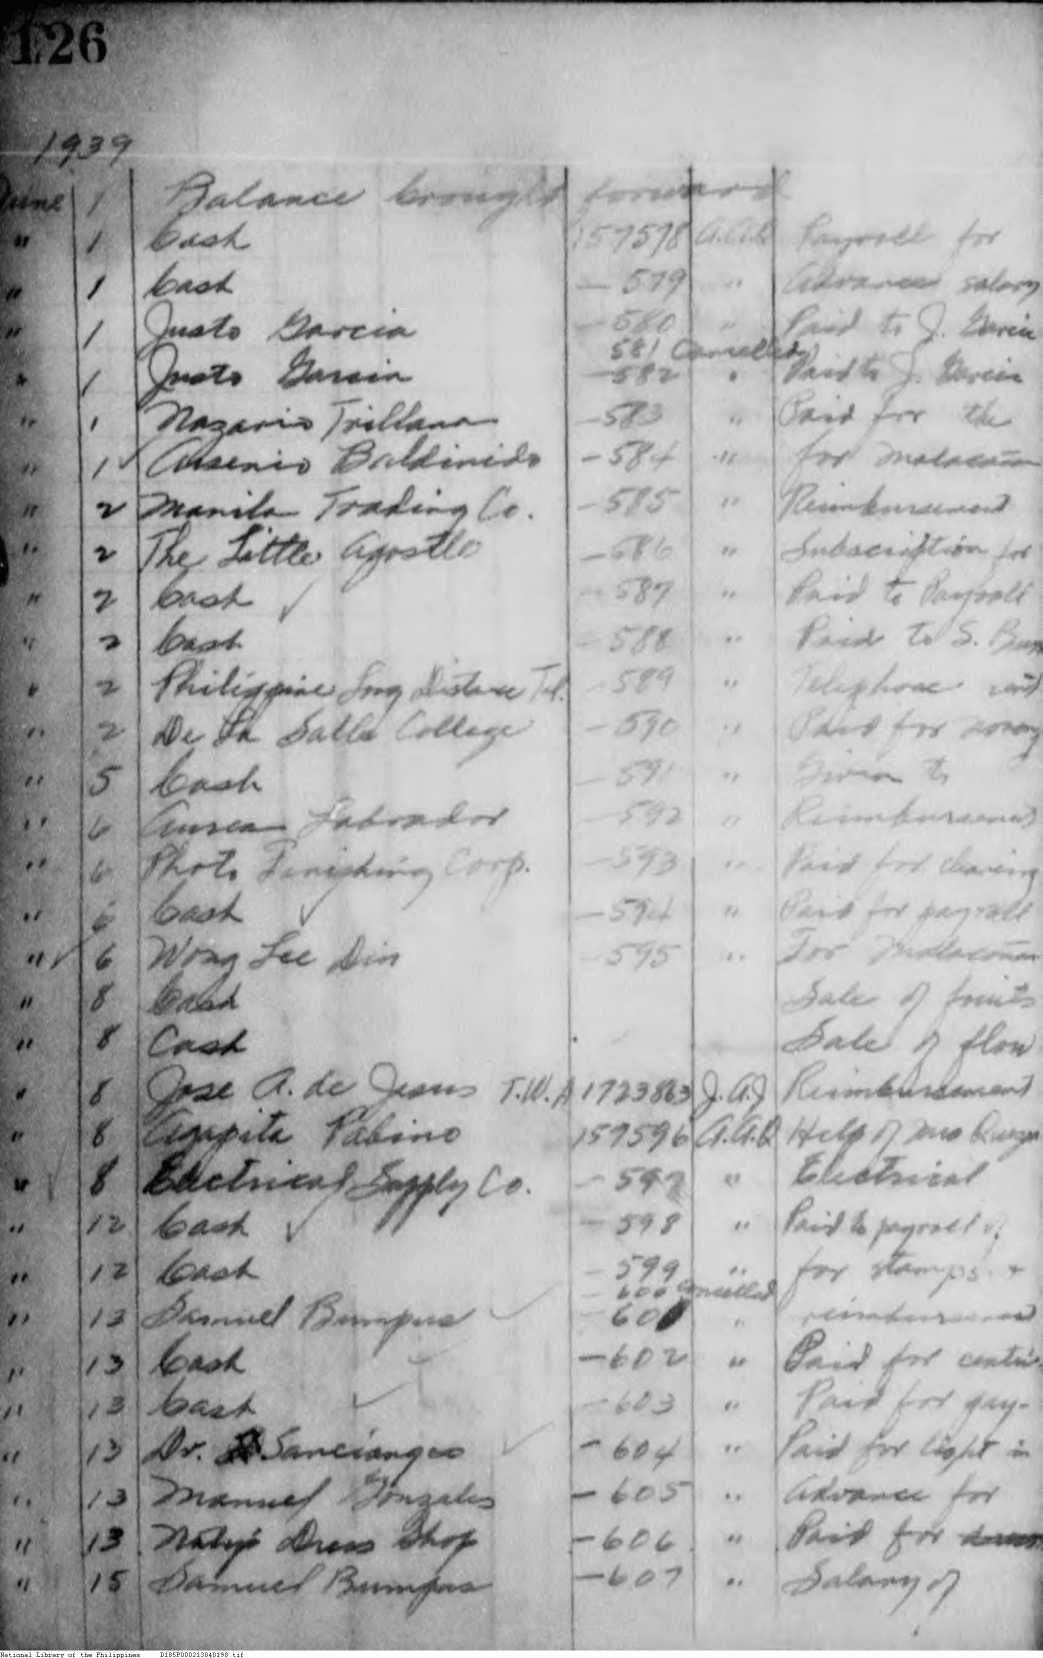 126
1939
June 1 Balance brought forward
" 1 Cash 157578 A.A.Q Payroll for
" 1 Cash — 579 " Advance salary
" 1 Justo Garcia — 580 " Paid to J. Garcia
581 Cancelled
" 1 Justo Garcia — 582 " Paid to J. Garcia
" 1 Nazario Trillana — 583 " Paid for the
" 1 Arsenio Baldinido — 584 " for Malacañan
" 2 Manila Trading Co. — 585 " Reimbursement
" 2 The Little Apostle — 586 " Subscription for
" 2 Cash — 587 " Paid to Payroll
" 2 Cash — 588 " Paid to S. Bum
" 2 Philippine Long Distance Tel. — 589 " Telephone rent
" 2 De La Salle College — 590 " Paid for
" 5 Cash — 591 " Given to
" 6 Aurea Labrador — 592 " Reimbursement
" 6 Photo Finishing Corp. — 593 " Paid for cleaning
" 6 Cash — 594 " Paid for payroll
" 6 Wong Lee Din — 595 " For Malacañan
" 8 Cash Sale of fruits
" 8 Cash Sale of flow
" 8 Jose A. de Jesus T.W.A 1723863 J.A.J Reimbursement
" 8 Agapita Pabino 157596 A.A.Q Help of Mrs Quezon
" 8 Electrical Supply Co. — 597 " Electrical
" 12 Cash — 598 " Paid to payroll of
" 12 Cash — 599 " for stamps +
— 600 Cancelled
" 13 Samuel Bumpus — 601 " reimbursement
" 13 Cash — 602 " Paid for contri-
" 13 Cash — 603 " Paid for pay-
" 13 Dr. Sanciangco — 604 " Paid for light in
" 13 Manuel Gonzales — 605 " Advance for
" 13 Naty's Dress Shop — 606 " Paid for
" 15 Samuel Bumpus — 607 " Salary of
National Library of the Philippines D185P000213040198.tif